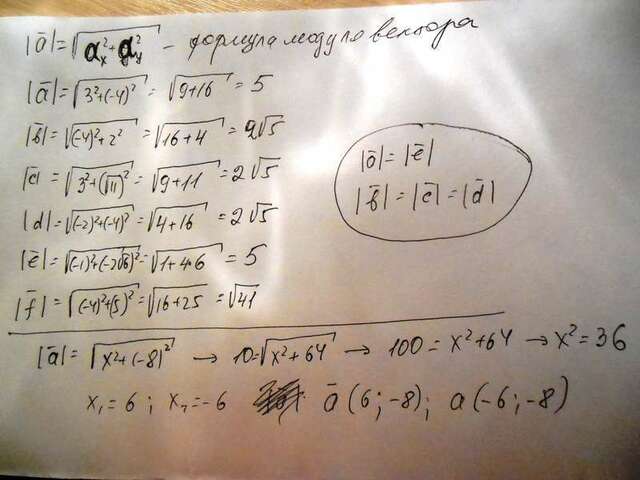 |ā| = √(aₓ² + a_y²) – формула модуля вектора
|ā| = √(3²+(-4)²) = √(9+16) = 5
|b̄| = √((-4)²+2²) = √(16+4) = 2√5
|c̄| = √(3²+(√11)²) = √(9+11) = 2√5
|d̄| = √((-2)²+(-4)²) = √(4+16) = 2√5
|ē| = √((-1)²+(-2√6)²) = √(1+4·6) = 5
|f̄| = √((-4)²+(5)²) = √(16+25) = √41
|ā| = |ē|
|b̄| = |c̄| = |d̄|
|ā| = √(x²+(-8)²) → 10 = √(x²+64) → 100 = x²+64 → x² = 36
x₁ = 6 ; x₂ = -6 ā (6 ; -8) ; a (-6 ; -8)